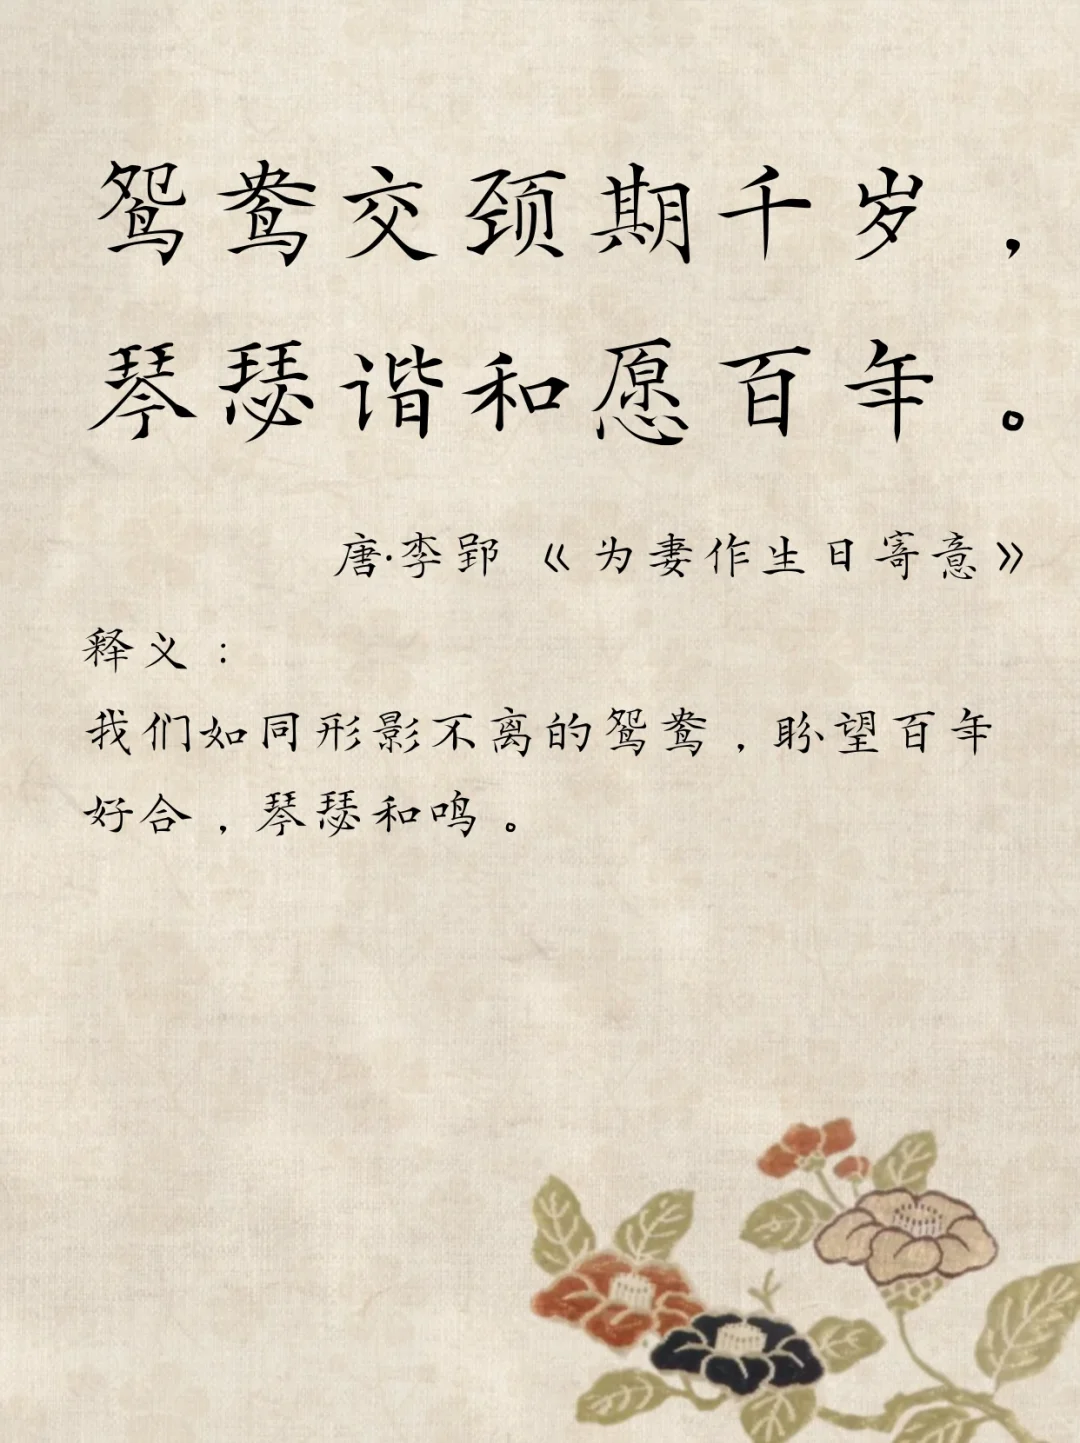 鸳鸯交颈期千岁，
琴瑟谐和愿百年。
唐·李郢《为妻作生日寄意》
释义：
我们如同形影不离的鸳鸯，盼望百年
好合，琴瑟和鸣。